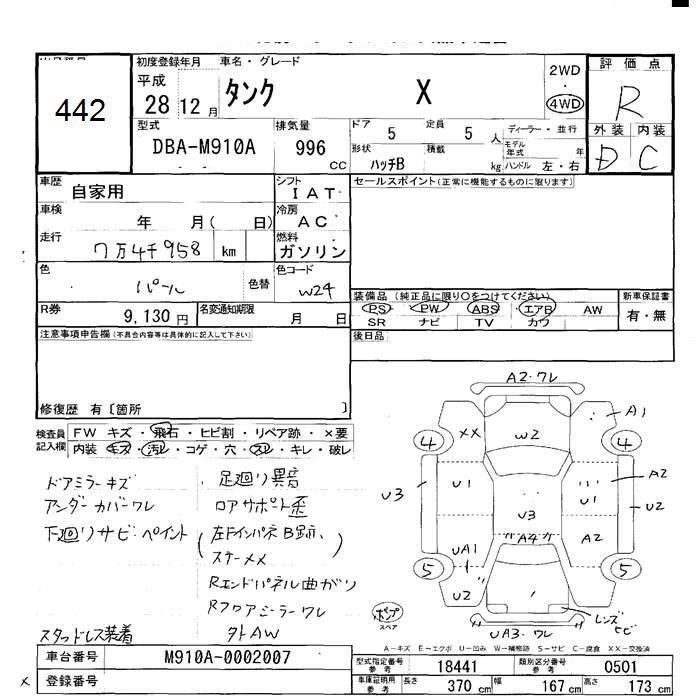 442
初度登録年月 車名・グレード
平成 28 12月 タンク X
2WD
4WD
評価点
R
外装 内装
D C
型式 排気量 ドア 定員 ディーラー・並行
DBA-M910A 996 CC 5 5 人
モデル年式 年
形状 積載
ハッチB kg ハンドル 左・右
車歴 シフト セールスポイント(正常に機能するものに限ります)
自家用 IAT
車検 冷房
年 月( 日) AC
走行 燃料
7万4千958 km ガソリン
色 色コード
パール 色替 W24
R券 名変通知期限
9,130円 月 日
装備品(純正品に限り○をつけてください) 新車保証書
PS PW ABS エアB AW 有・無
SR ナビ TV カワ
後日品
注意事項申告欄(不具合内容等は具体的に記入して下さい)
修復歴 有〔箇所 〕
検査員記入欄
FW キズ・飛石・ヒビ割・リペア跡・×要
内装 キズ・汚レ・コゲ・穴・スレ・キレ・破レ
ドアミラーキズ 足廻り異音
アンダーカバーワレ ロアサポート歪
下廻りサビ・ペイント (左ドインパネB跡、
スナーメメ
Rエンドパネル曲がり
Rフロアミラーワレ
スタッドレス装着 外AW
A2・ワレ
A1
XX
W2
4 4
U1
U3
U3
U1
A2
U2
UA1
A4
A2
5 5
U2
レンズヒビ
UA3・ワレ
ポンプ
スペア
A-キズ E-エクボ U-凹み W-補修跡 S-サビ C-腐食 XX-交換済
車台番号 M910A-0002007
型式指定番号参考 18441 類別区分番号参考 0501
× 登録番号
車庫証明用参考 長さ 370 cm 幅 167 cm 高さ 173 cm